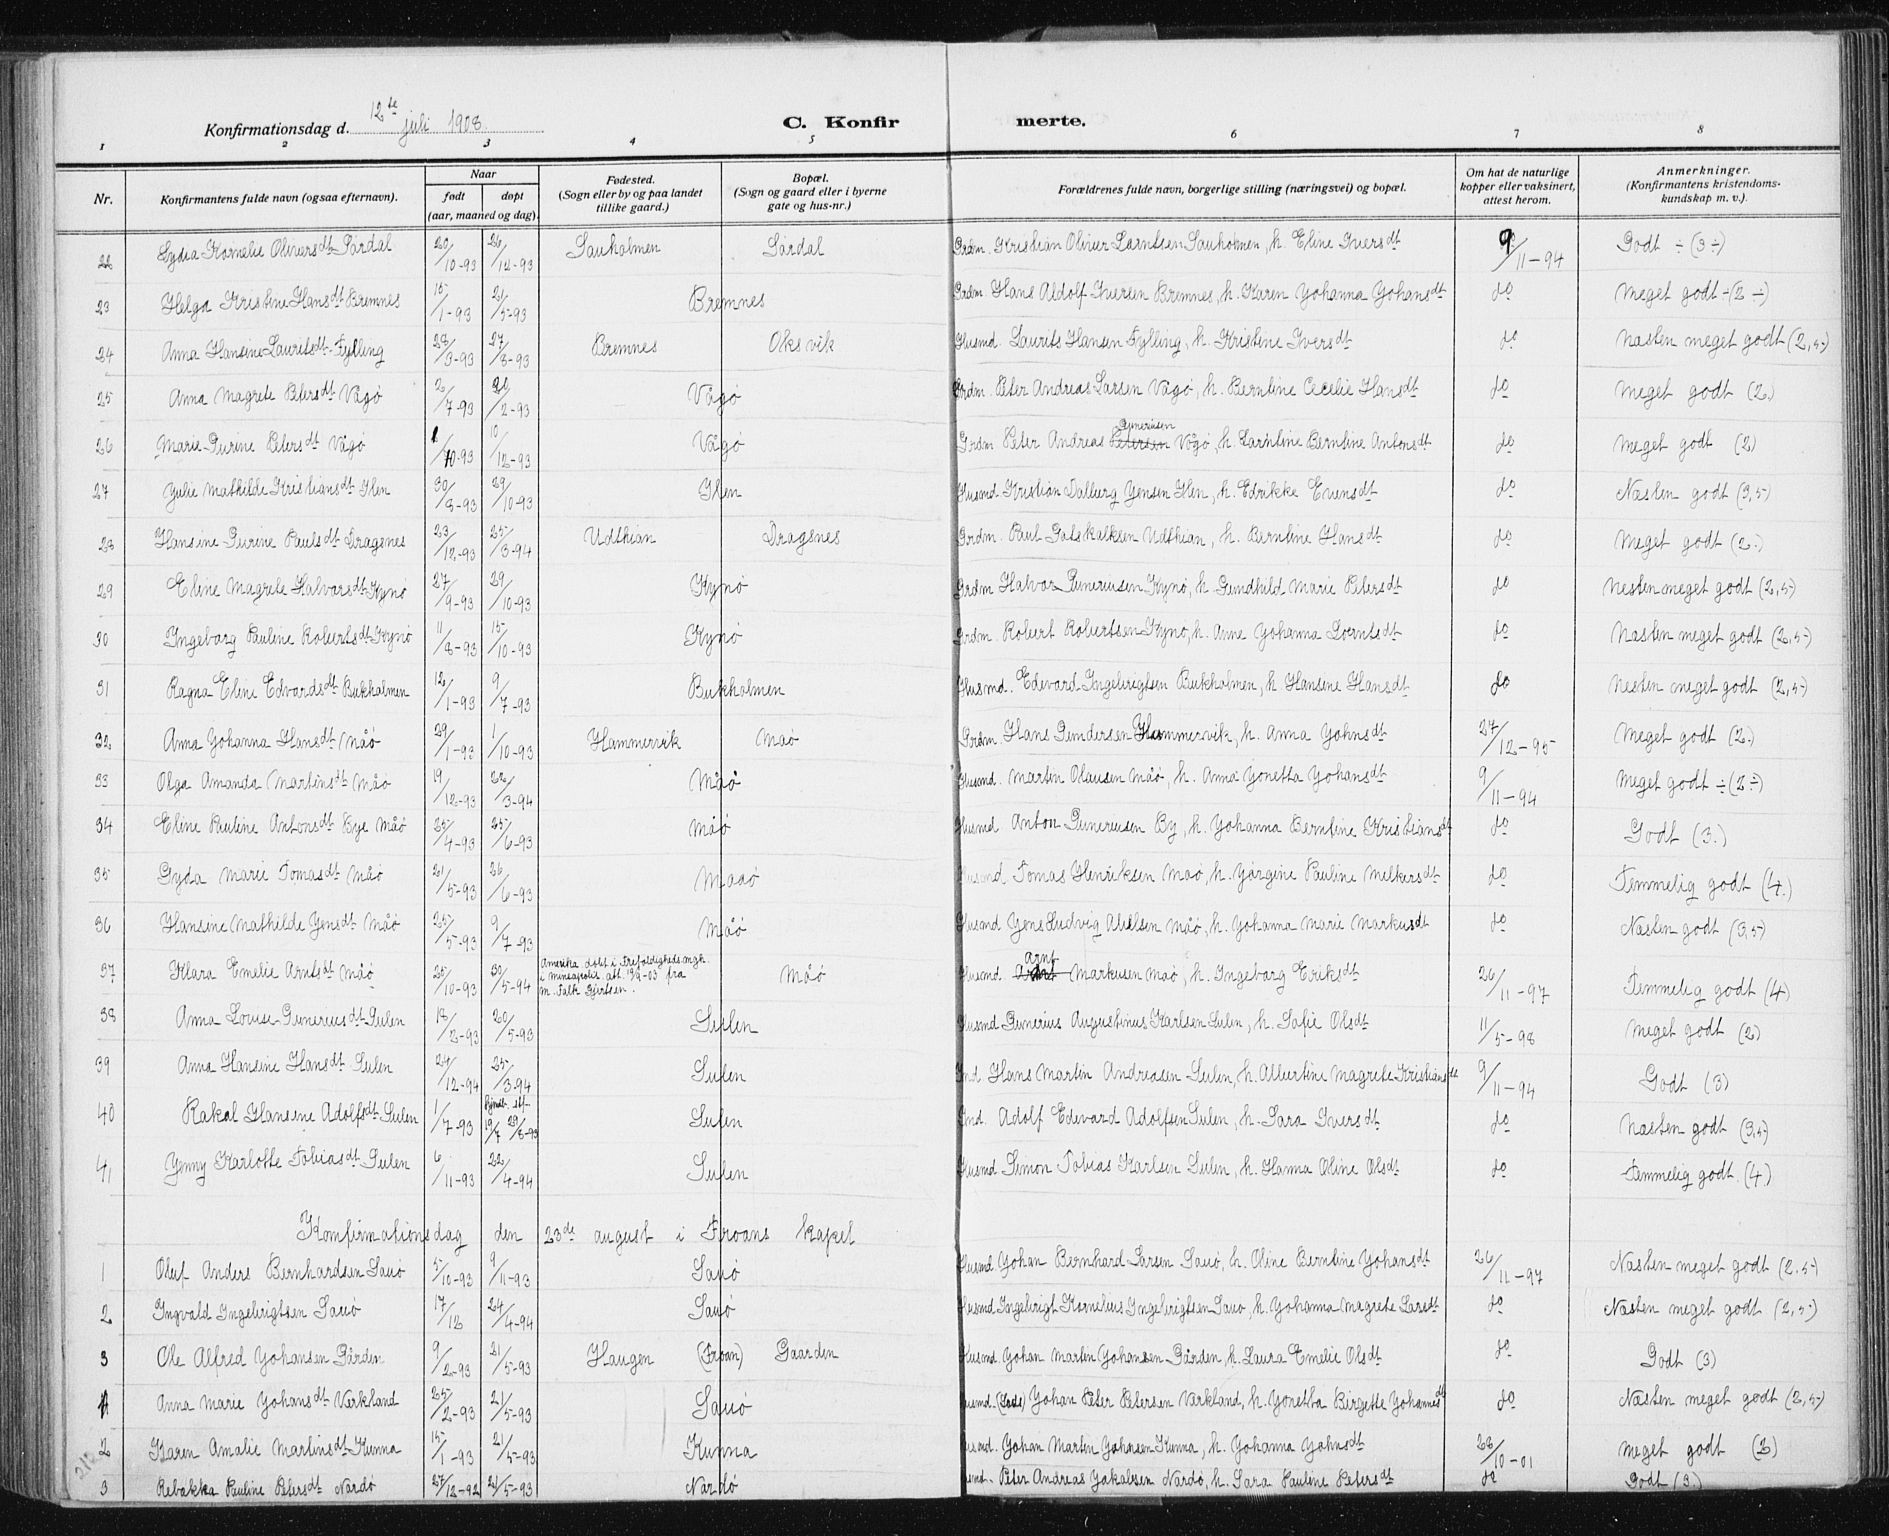 Konfirmationsdag d. 12te juli 1908.
C. Konfirmerte.
1 2 3 4 5 6 7 8
Nr.
Konfirmantens fulde navn (ogsaa efternavn).
Naar
født døpt
(aar, maaned og dag).
Fødested.
(Sogn eller by og paa landet
tillike gaard.)
Bopæl.
(Sogn og gaard eller i byerne
gate og hus-nr.)
Forældrenes fulde navn, borgerlige stilling (næringsvei) og bopæl.
Om hat de naturlige
kopper eller vaksinert,
attest herom.
Anmerkninger.
(Konfirmantens kristendoms-
kundskap m. v.).
22 Lydia Kornelie Oliversdt Sørdal 20/10-93 26/12-93 Sauholmen Sørdal Grdm. Kristian Oliver Larntsen Sauholmen, h. Eline Iversdt 9/11-94 Godt ÷ (3÷)
23 Helga Kristine Hansdt Bremnes 15/1-93 21/5-93 Bremnes Grdm. Hans Aldolf Iversen Bremnes, h. Karen Yohanna Yohansdt do Meget godt ÷ (2 ÷)
24 Anna Hansine Lauritsdt Fylling 28/3-93 27/8-93 Bremnes Oksvik Husmd. Laurits Hansen Fylling, h. Kristine Iversdt do Næsten meget godt (2,5)
25 Anna Magrete Petersdt Vågø 2/7-93 20/2-93 Vågø Grdm. Peter Andreas Larsen Vågø, h. Berntine Cecelie Hansdt do Meget godt (2.)
26 Marie Gurine Petersdt Vågø 1/10-93 10/12-93 Vågø Grdm Peter Andreas Guneriusen Vågø, h. Larntine Berntine Antonsdt do Meget godt (2)
27 Yulie Mathilde Kristiansdt Ilen 30/8-93 29/10-93 Ilen Husmd Kristian Dalburg Yensen Ilen, h. Edrikke Evensdt do Næsten godt (3,5)
28 Hansine Gurine Paulsdt Dragsnes 23/12-93 25/3-94 Udthian Dragsnes Grdm. Paul Gotskalksen Udthian, h. Berntine Hansdt do Meget godt (2.)
29 Eline Magrete Halvarsdt Kynø 27/9-93 29/10-93 Kynø Grdm Halvar Guneriusen Kynø, h. Gundhild Marie Petersdt do Nesten meget godt (2,5)
30 Ingeborg Pauline Robertsdt Kynø 11/8-93 15/10-93 Kynø Grdm. Robert Robertsen Kynø, h. Anne Yohanna Lorntsdt do Næsten meget godt (2,5)
31 Ragna Eline Edvardsdt Bukholmen 12/1-93 9/7-93 Bukholmen Husmd. Edevard Ingebrigtsen Bukholmen, h. Hansine Hansdt do Nesten meget godt (2,5)
32 Anna Yohanna Hansdt Måø 29/1-93 1/10-93 Hammervik Maø Grdm. Hans Gundersen Hammervik, h. Anna Yohnsdt 27/12-95 Meget godt (2.)
33 Olga Amanda Martinsdt Måø 19/12-93 22/3-94 Måø Husmd. Martin Olausen Måø, h. Anna Yonetta Yohansdt 9/11-94 Meget godt ÷ (2÷)
34 Eline Pauline Antonsdt Bye Måø 25/4-93 25/6-93 Måø Husmd Anton Guneriusen By, h. Yohanna Berntine Kristiansdt do Godt (3.)
35 Gyda Marie Tomasdt Måø 21/5-93 26/6-93 Maaø Husmd Tomas Henriksen Maø, h. Yørgine Pauline Melkersdt do Temmelig godt (4.)
36 Hansine Mathilde Yensdt Måø 25/5-93 9/7-93 Måø Husmd Yens Ludvig Abelsen Måø, h. Yohanna Marie Markusdt do Næsten godt (3,5)
37 Klara Emelie Arntsdt Måø 25/10-93 30/5-94 Amerika døbt i Trefoldighedsmgh. i Mineapolis att. 19/2-03 fra M. Falk Gjertsen. Måø Husmd. Arnt Markusen Maø, h. Ingeborg Eriksdt 26/11-97 Temmelig godt (4)
38 Anna Lovise Guneriusdt Sulen 18/2-93 20/5-93 Sulen Husmd Gunerius Augustinus Karlsen Sulen, h. Sofie Olsdt 11/5-98 Meget godt (2)
39 Anna Hansine Hansdt Sulen 24/12-94 25/3-94 Sulen Ind Hans Martin Andreasen Sulen, h. Albertine Magrete Kristiansdt 9/11-94 Godt (3)
40 Rakel Hansine Adolfsdt Sulen 1/7-93 hjmdt 19/7 stf 29/8-93 Sulen Ind. Adolf Edevard Adolfsen Sulen, h. Sara Iversdt do Næsten godt (3,5)
41 Yenny Karlotte Tobiasdt Sulen 6/11-93 22/4-94 Sulen Husmd Simon Tobias Karlsen Sulen, h. Hanna Oline Olsdt do Temmelig godt. (4.)
Konfirmationsdag den 23de august i Froans kapel
1 Oluf Anders Bernhardsen Sauø 5/10-93 9/11-93 Sauø Husmd Yohan Bernhard Larsen Sauø, h. Oline Berntine Yohansdt 26/11-97 Næsten meget godt (2,5)
2 Ingvald Ingebrigtsen Sauø 17/12 24/4-94 Sauø Husmd Ingebrigt Kornelius Ingebrigtsen Sauø h. Yohanna Magrete Larsdt do Næsten meget godt (2,5)
3 Ole Alfred Yohansen Gården 9/2-93 21/5-93 Haugen (Froan) Gaarden Husmd Yohan Martin Yohansen Gården, h. Laura Emelie Olsdt do Godt (3)
1 Anna Marie Yohansdt Verkland 25/2-93 21/5-93 Sauø Husmd. Yohan Peter Petersen Værkland, h. Yonetta Birgette Yohannesdt do Næsten meget godt (2,5)
2 Karen Amalie Martinsdt Kunna 15/1-93 21/5-93 Kunna Husmd. Yohan Martin Yohnsen Kunna, h. Yohanna Yohnsdt 28/10-01 Meget godt (2)
3 Rebakka Pauline Petersdt Nordø 27/12-92 21/5-93 Nordø Husmd. Peter Andreas Yakobsen Nordø, h. Sara Pauline Petersdt do Godt (3.)